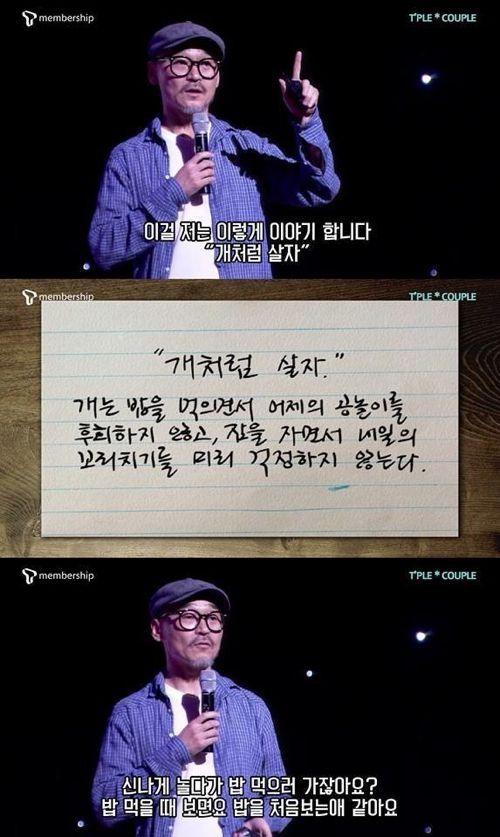 membership
T*PLE * COUPLE
이걸 저는 이렇게 이야기 합니다
"개처럼 살자"
membership
T*PLE * COUPLE
"개처럼 살자."
개는 밥을 먹으면서 어제의 공놀이를
후회하지 않고, 잠을 자면서 내일의
꼬리치기를 미리 걱정하지 않는다.
membership
T*PLE * COUPLE
신나게 놀다가 밥 먹으러 가잖아요?
밥 먹을 때 보면요 밥을 처음보는애 같아요